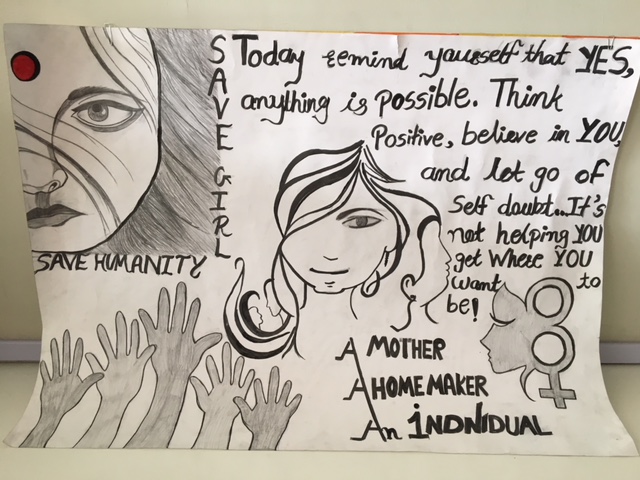 SAVE GIRL
SAVE HUMANITY
Today remind yourself that YES,
anything is possible. Think
Positive, believe in YOU,
and let go of
Self doubt...It's
not helping YOU
get where YOU
want to
be!
A MOTHER
A HOME MAKER
An iNDNIDUAL